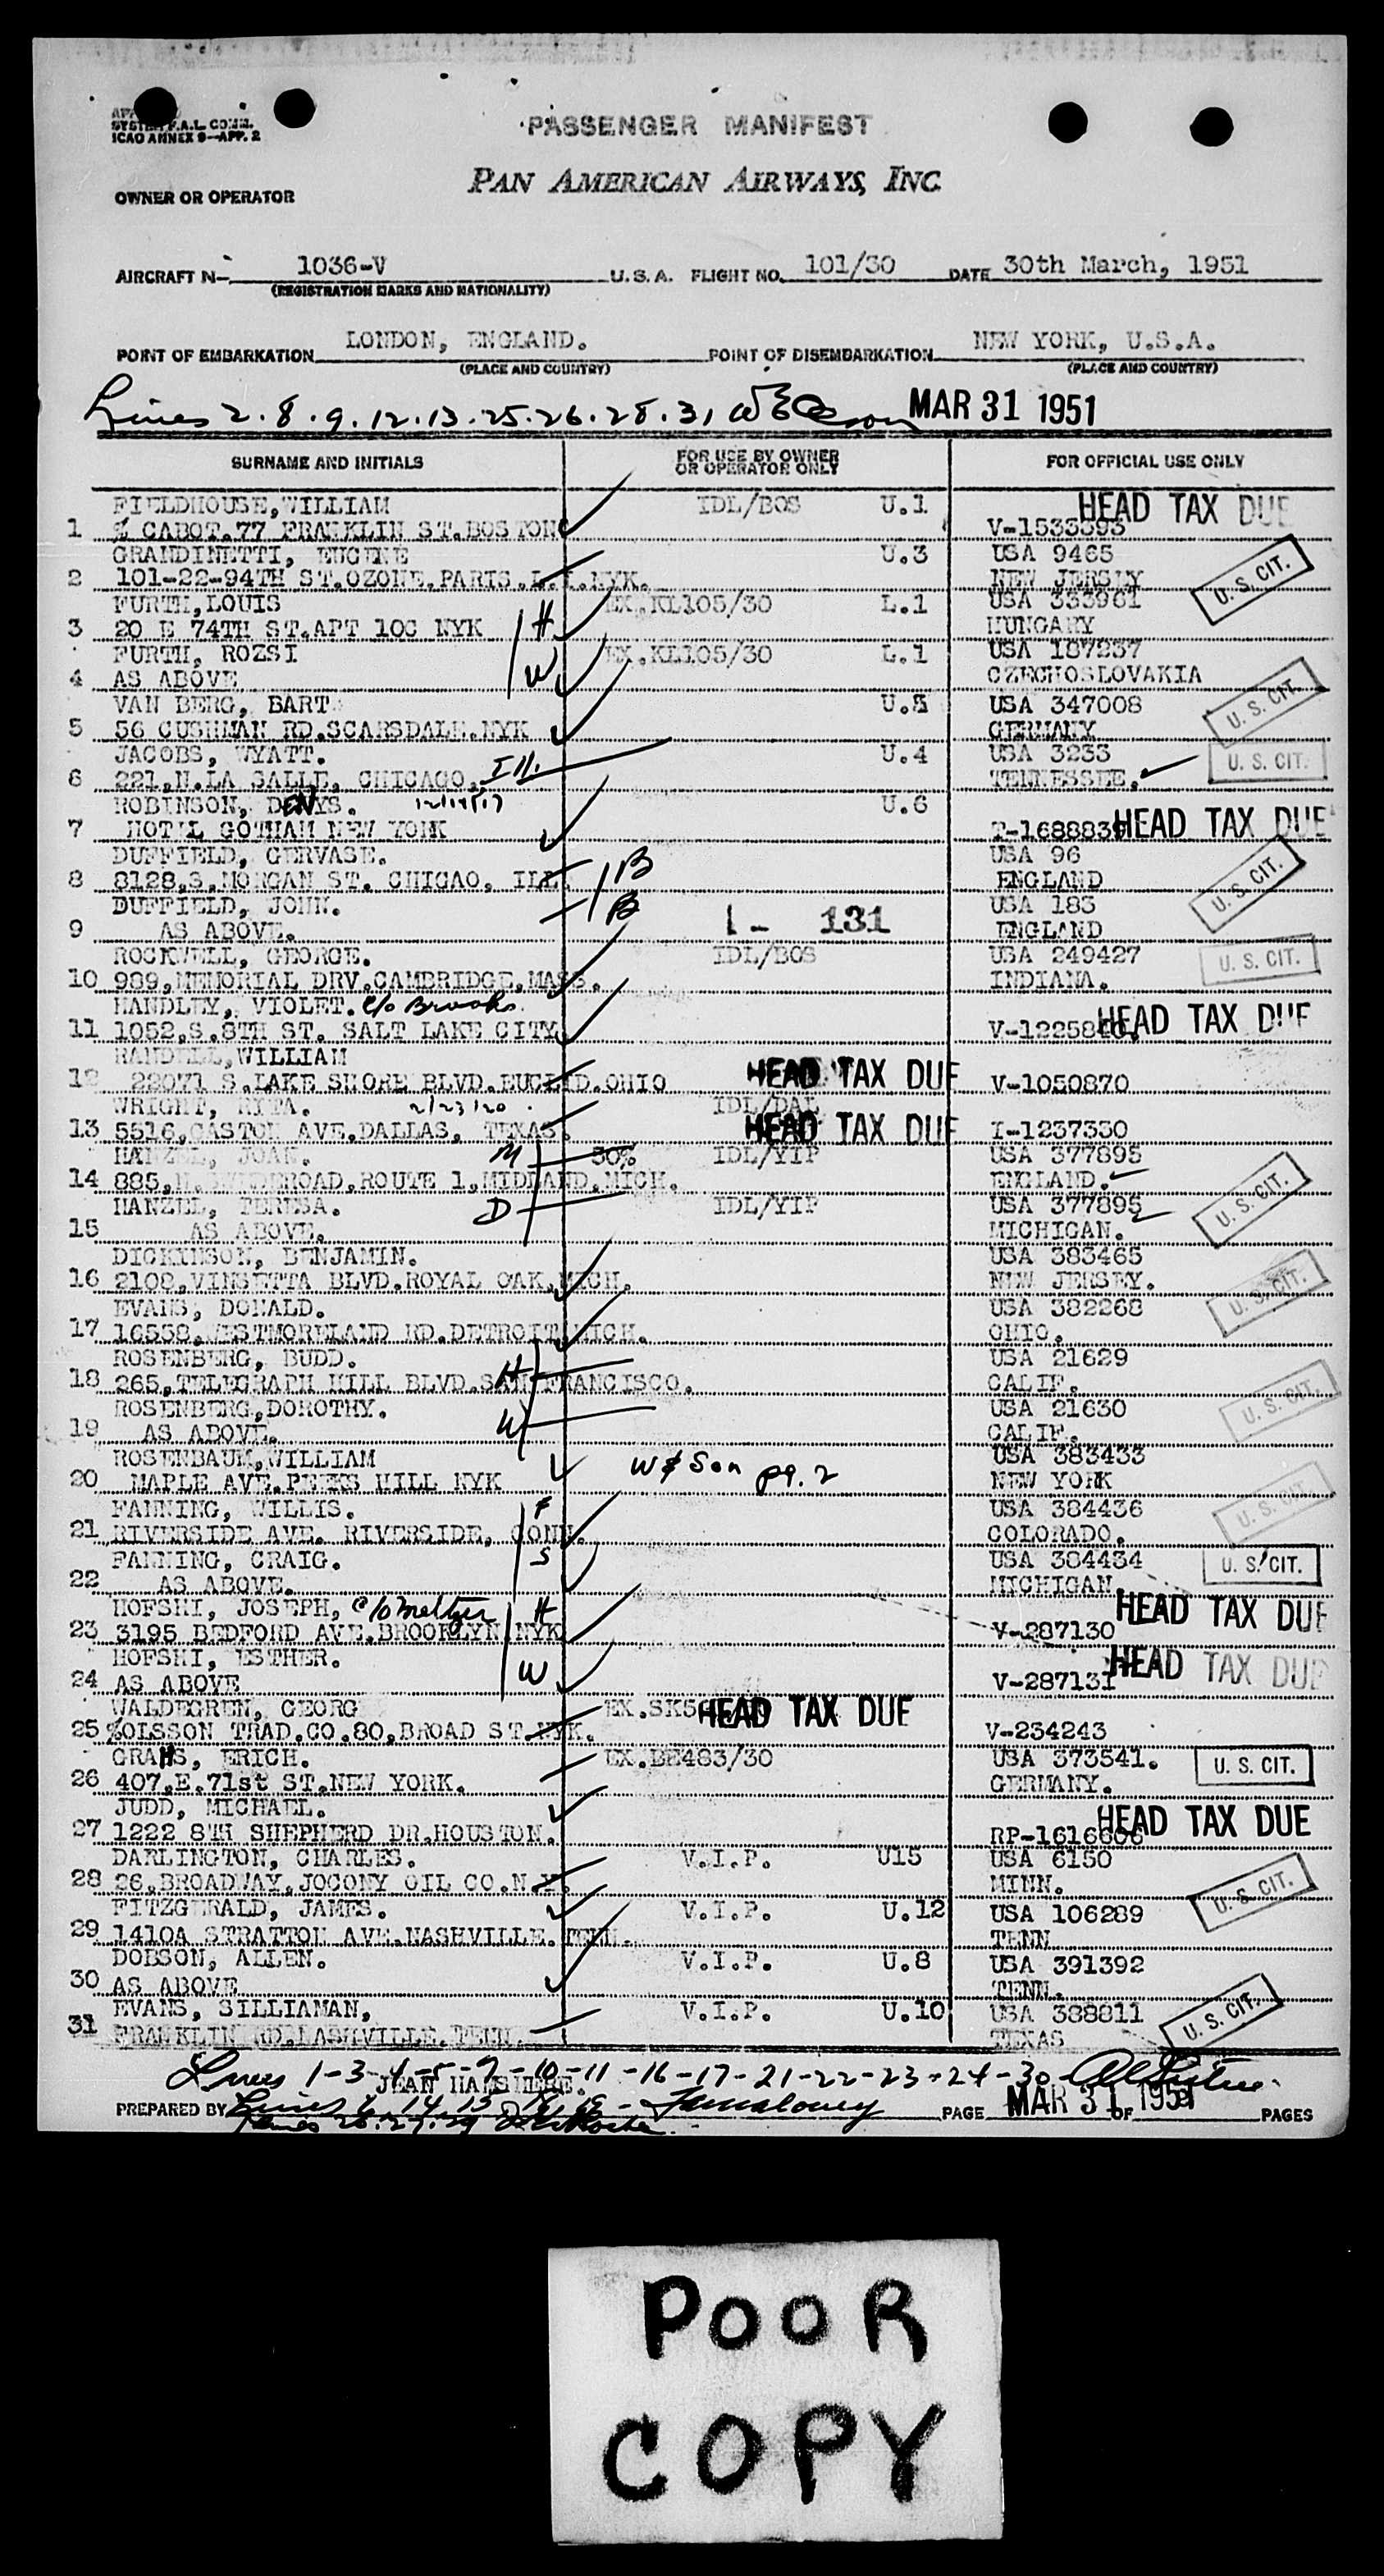 SYSTEM F.A.L. COMM.
ICAO ANNEX 9—APP. 2
PASSENGER MANIFEST
PAN AMERICAN AIRWAYS, INC
OWNER OR OPERATOR
AIRCRAFT N— 1036-V U.S.A. FLIGHT NO. 101/30 DATE 30th March, 1951
(REGISTRATION MARKS AND NATIONALITY)
POINT OF EMBARKATION LONDON, ENGLAND. POINT OF DISEMBARKATION NEW YORK, U.S.A.
(PLACE AND COUNTRY) (PLACE AND COUNTRY)
Lines 2.8.9.12.13.25.26.28.31 MAR 31 1951
SURNAME AND INITIALS FOR USE BY OWNER OR OPERATOR ONLY FOR OFFICIAL USE ONLY
FIELDHOUSE,WILLIAM IDL/BOS U.1 HEAD TAX DUE
1 % CABOT.77 FRANKLIN ST.BOSTON V-1533393
GRANDINETTI, EUGENE U.3 USA 9465
2 101-22-94TH ST.OZONE.PARTS.L.I.NYK. NEW JERSEY U. S. CIT.
FURTH,LOUIS EX.KL105/30 L.1 USA 333961
3 20 E 74TH ST.APT 10C NYK H HUNGARY
FURTH, ROZSI EX.KL105/30 L.1 USA 187237
4 AS ABOVE W CZECHOSLOVAKIA
VAN BERG, BART U.5 USA 347008 U. S. CIT.
5 56 CUSHMAN RD.SCARSDALE.NYK GERMANY
JACOBS, WYATT. U.4 USA 3233
6 221,N.LA SALLE, CHICAGO, Ill. TENNESSEE. U. S. CIT.
ROBINSON, DENYS. 12/19/17 U.6
7 HOTEL GOTHAM NEW YORK HEAD TAX DUE
DUFFIELD, GERVASE. USA 96
8 8128,S.MORGAN ST. CHICAO, ILL. B ENGLAND U. S. CIT.
DUFFIELD, JOHN. B USA 183
9 AS ABOVE. 1 - 131 ENGLAND
ROCKWELL, GEORGE. IDL/BOS USA 249427
10 989,MEMORIAL DRV.CAMBRIDGE,MASS. INDIANA. U. S. CIT.
HANDLEY, VIOLET. c/o Brooks.
11 1052,S.8TH ST. SALT LAKE CITY. HEAD TAX DUE
WILLIAM
12 22071 S.LAKE SHORE BLVD.EUCLID.OHIO HEAD TAX DUE V-1050870
WRIGHT, RITA. 2/23/20 IDL/DAL
13 5516,GASTON AVE,DALLAS, TEXAS. HEAD TAX DUE I-1237330
HANZEL, JOAN. M 50% IDL/YIP USA 377895
14 885, ROAD.ROUTE 1,MIDLAND.MICH. ENGLAND.
HANZEL, TERESA. D IDL/YIP USA 377895 U. S. CIT.
15 AS ABOVE. MICHIGAN.
DICKINSON, BENJAMIN. USA 383465
16 2108,VINSETTA BLVD.ROYAL OAK,MICH. NEW JERSEY. U. S. CIT.
EVANS, DONALD. USA 382268
17 16558,WESTMORELAND RD.DETROIT MICH. OHIO.
ROSENBERG, BUDD. H USA 21629
18 265,TELEGRAPH HILL BLVD.SAN FRANCISCO. CALIF.
ROSENBERG,DOROTHY. W USA 21630 U. S. CIT.
19 AS ABOVE. CALIF.
ROSENBAUM,WILLIAM W & Son pg. 2 USA 383433
20 MAPLE AVE.PEEKS HILL NYK NEW YORK
FANNING, WILLIS. F USA 384436 U. S. CIT.
21 RIVERSIDE AVE. RIVERSIDE, CONN. COLORADO.
FANNING, CRAIG. S USA 384434 U. S. CIT.
22 AS ABOVE. MICHIGAN.
HOFSHI, JOSEPH, c/o Meltzer H HEAD TAX DUE
23 3195 BEDFORD AVE.BROOKLYN NYK V-287130
HOFSHI, ESTHER. HEAD TAX DUE
24 AS ABOVE W V-287131
WALDEGREN, GEORG HEAD TAX DUE
25 %OLSSON TRAD.CO.80,BROAD ST.NYK. V-234243
GRAHS, ERICH. EX.BE483/30 USA 373541. U. S. CIT.
26 407.E.71st ST.NEW YORK. GERMANY.
JUDD, MICHAEL. HEAD TAX DUE
27 1222 8TH SHEPHERD DR.HOUSTON. RP-1616606
DARLINGTON, CHARLES. V.I.P. U15 USA 6150
28 26,BROADWAY,JOCONY OIL CO.N.Y. MINN. U. S. CIT.
FITZGERALD, JAMES. V.I.P. U.12 USA 106289
29 1410A STRATTON AVE.NASHVILLE.TENN. TENN
DOBSON, ALLEN. V.I.P. U.8 USA 391392
30 AS ABOVE TENN.
EVANS, SILLIAMAN, V.I.P. U.10 USA 388811 U. S. CIT.
31 FRANKLIN RD.NASHVILLE.TENN. TEXAS
Lines 1-3-4-5-7-10-11-16-17-21-22-23-24-30
JEAN
PREPARED BY Lines PAGE MAR 31 1951 OF PAGES
POOR
COPY